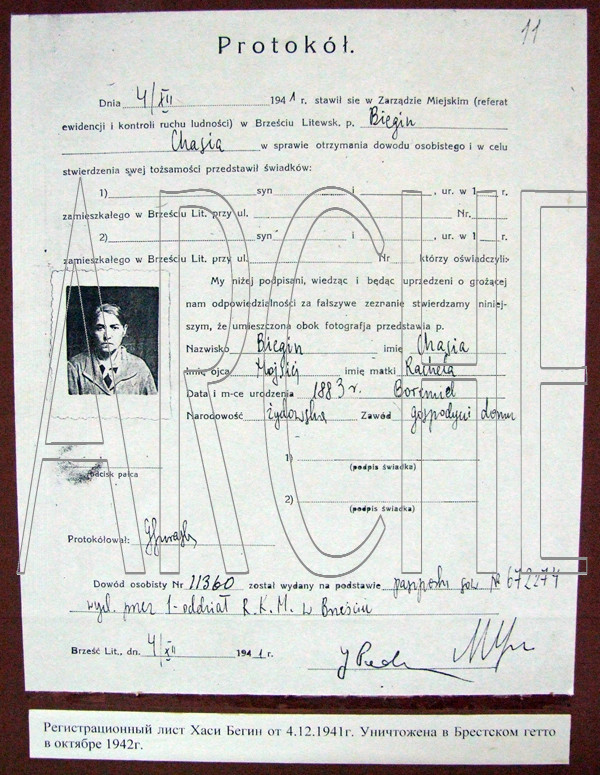 11
Protokół.
Dnia 4/XII 1941 r. stawił sie w Zarządzie Miejskim (referat
ewidencji i kontroli ruchu ludności) w Brześciu Litewsk. p. Biegin
Chasia w sprawie otrzymania dowodu osobistego i w celu
stwierdzenia swej tożsamości przedstawił świadków:
1) syn i , ur. w 1 r.
zamieszkałego w Brześciu Lit. przy ul. Nr.
2) syn i , ur. w 1 r.
zamieszkałego w Brześciu Lit. przy ul. Nr którzy oświadczyli:
My niżej podpisani, wiedząc i będąc uprzedzeni o grożącej
nam odpowiedzialności za fałszywe zeznanie stwierdzamy niniej-
szym, że umieszczona obok fotografja przedstawia p.
Nazwisko Biegin imię Chasia
Imię ojca Mojsiej imię matki Rachela
Data i m-ce urodzenia 1883 r. Boremiel
Narodowość żydowska Zawód gospodyni domu
1)
(podpis świadka)
odcisk palca
2)
(podpis świadka)
Protokółował:
Dowód osobisty Nr 11360 został wydany na podstawie paszportu sow № 672274
wyd. przez 1-oddział R.K.M. w Brześciu
Brześć Lit., dn. 4/XII 1941 r.
ARCHE
Регистрационный лист Хаси Бегин от 4.12.1941г. Уничтожена в Брестском гетто
в октябре 1942г.